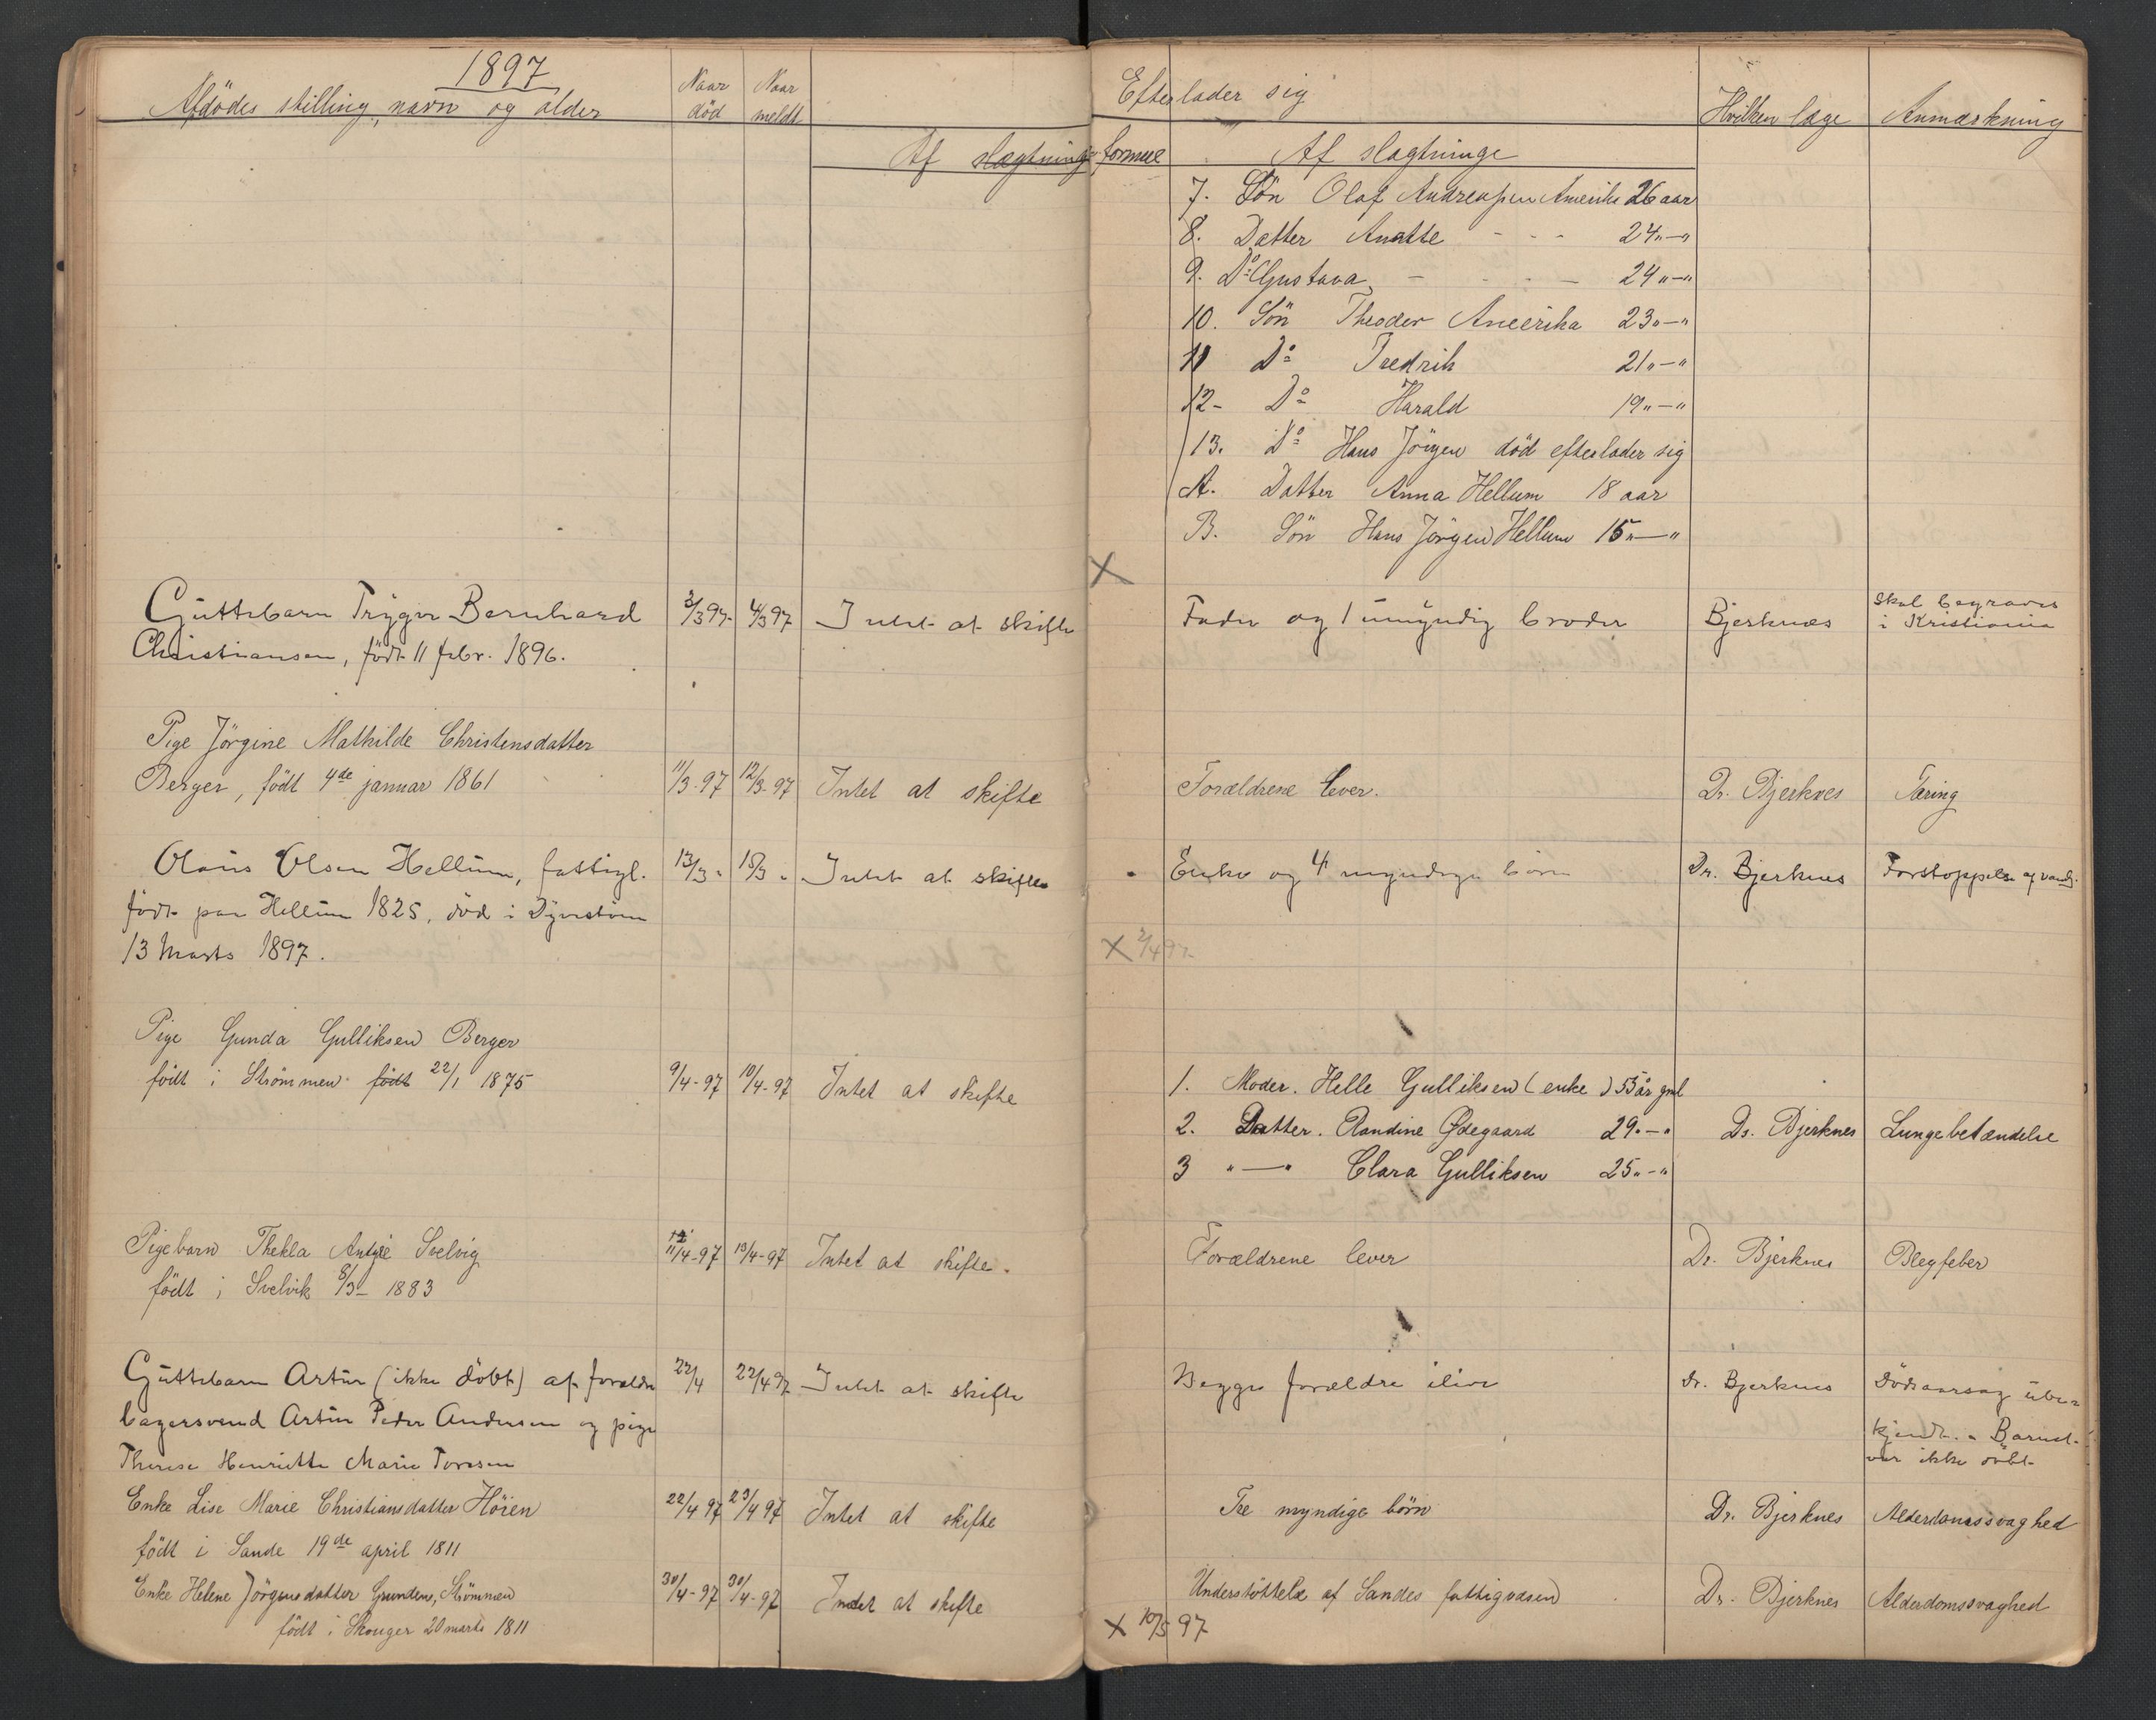 1897
Afdödes stilling, navn og alder
Naar död
Naar meldt
Efterlader sig
Hvilken læge
Anmærkning
Af slægtninge formue
Af slægtninge
7. Sön Olaf Andreassen Amerika 26 aar
8. Datter Anette - - - 24 " — "
9. Do Gustava - - - 24 " — "
10. Sön Theodor Amerika 23 " — "
11 Do Fredrik 21 " — "
12 - Do Harald 19 " — "
13. Do Hans Jörgen död efterlader sig
A. Datter Anna Hellum 18 aar
B. Sön Hans Jörgen Hellum 15 " — "
X
Guttebarn Trygve Bernhard 3/3 97 4/3 97 Intet at skifte Fader og 1 umyndig broder Bjerknæs Skal begraves
Christiansen, født 11 febr. 1896. i Kristiania
Pige Jörgine Mathilde Christensdatter
Berger, födt 4de januar 1861 11/3-97 12/3-97 Intet at skifte Forældrene lever. Dr. Bjerknes Tæring
Olaus Olsen Hellum, fattigl. 13/3 " 15/3 " Intet at skifte Enke og 4 myndige börn Dr. Bjerknes Forstoppelse af vand.
födt paa Hellum 1825, död i
13 Marts 1897.
X 2/4 97
Pige Gunda Gulliksen Berger
födt i Strömmen födt 22/1 1875 9/4-97 10/4-97 Intet at skifte 1. Moder. Helle Gulliksen (enke) 55 år gml
2. Datter. Randine Ødegaard 29 " — " Dr. Bjerknes Lungebetændelse
3 " — " Clara Gulliksen 25 " — "
12
Pigebarn Thekla Svelvig 11/4-97 13/4-97 Intet at skifte. Forældrene lever Dr. Bjerknes Blegfeber
födt i Svelvik 8/3 - 1883
Guttebarn Artur (ikke döbt) af forældre 22/4 22/4 97 Intet at skifte Begge forældre ilive Dr. Bjerknes Dödsaarsag ube-
bagersvend Artur Peder Andersen og pige kjendt. - Barnet
Therese Henriette Marie Toresen var ikke döbt
Enke Lise Marie Christiansdatter Höien 22/4 97 23/4 97 Intet at skifte Tre myndige börn Dr. Bjerknes Alderdomssvaghed
födt i Sande 19de april 1811
Enke Helene Jörgensdatter Grunden, Strömmen 30/4-97 30/4-97 Intet at skifte Understöttelse af Sandes fattigvæsen Dr. Bjerknes Alderdomssvaghed
födt i Skouger 20 marts 1811
X 10/5 97